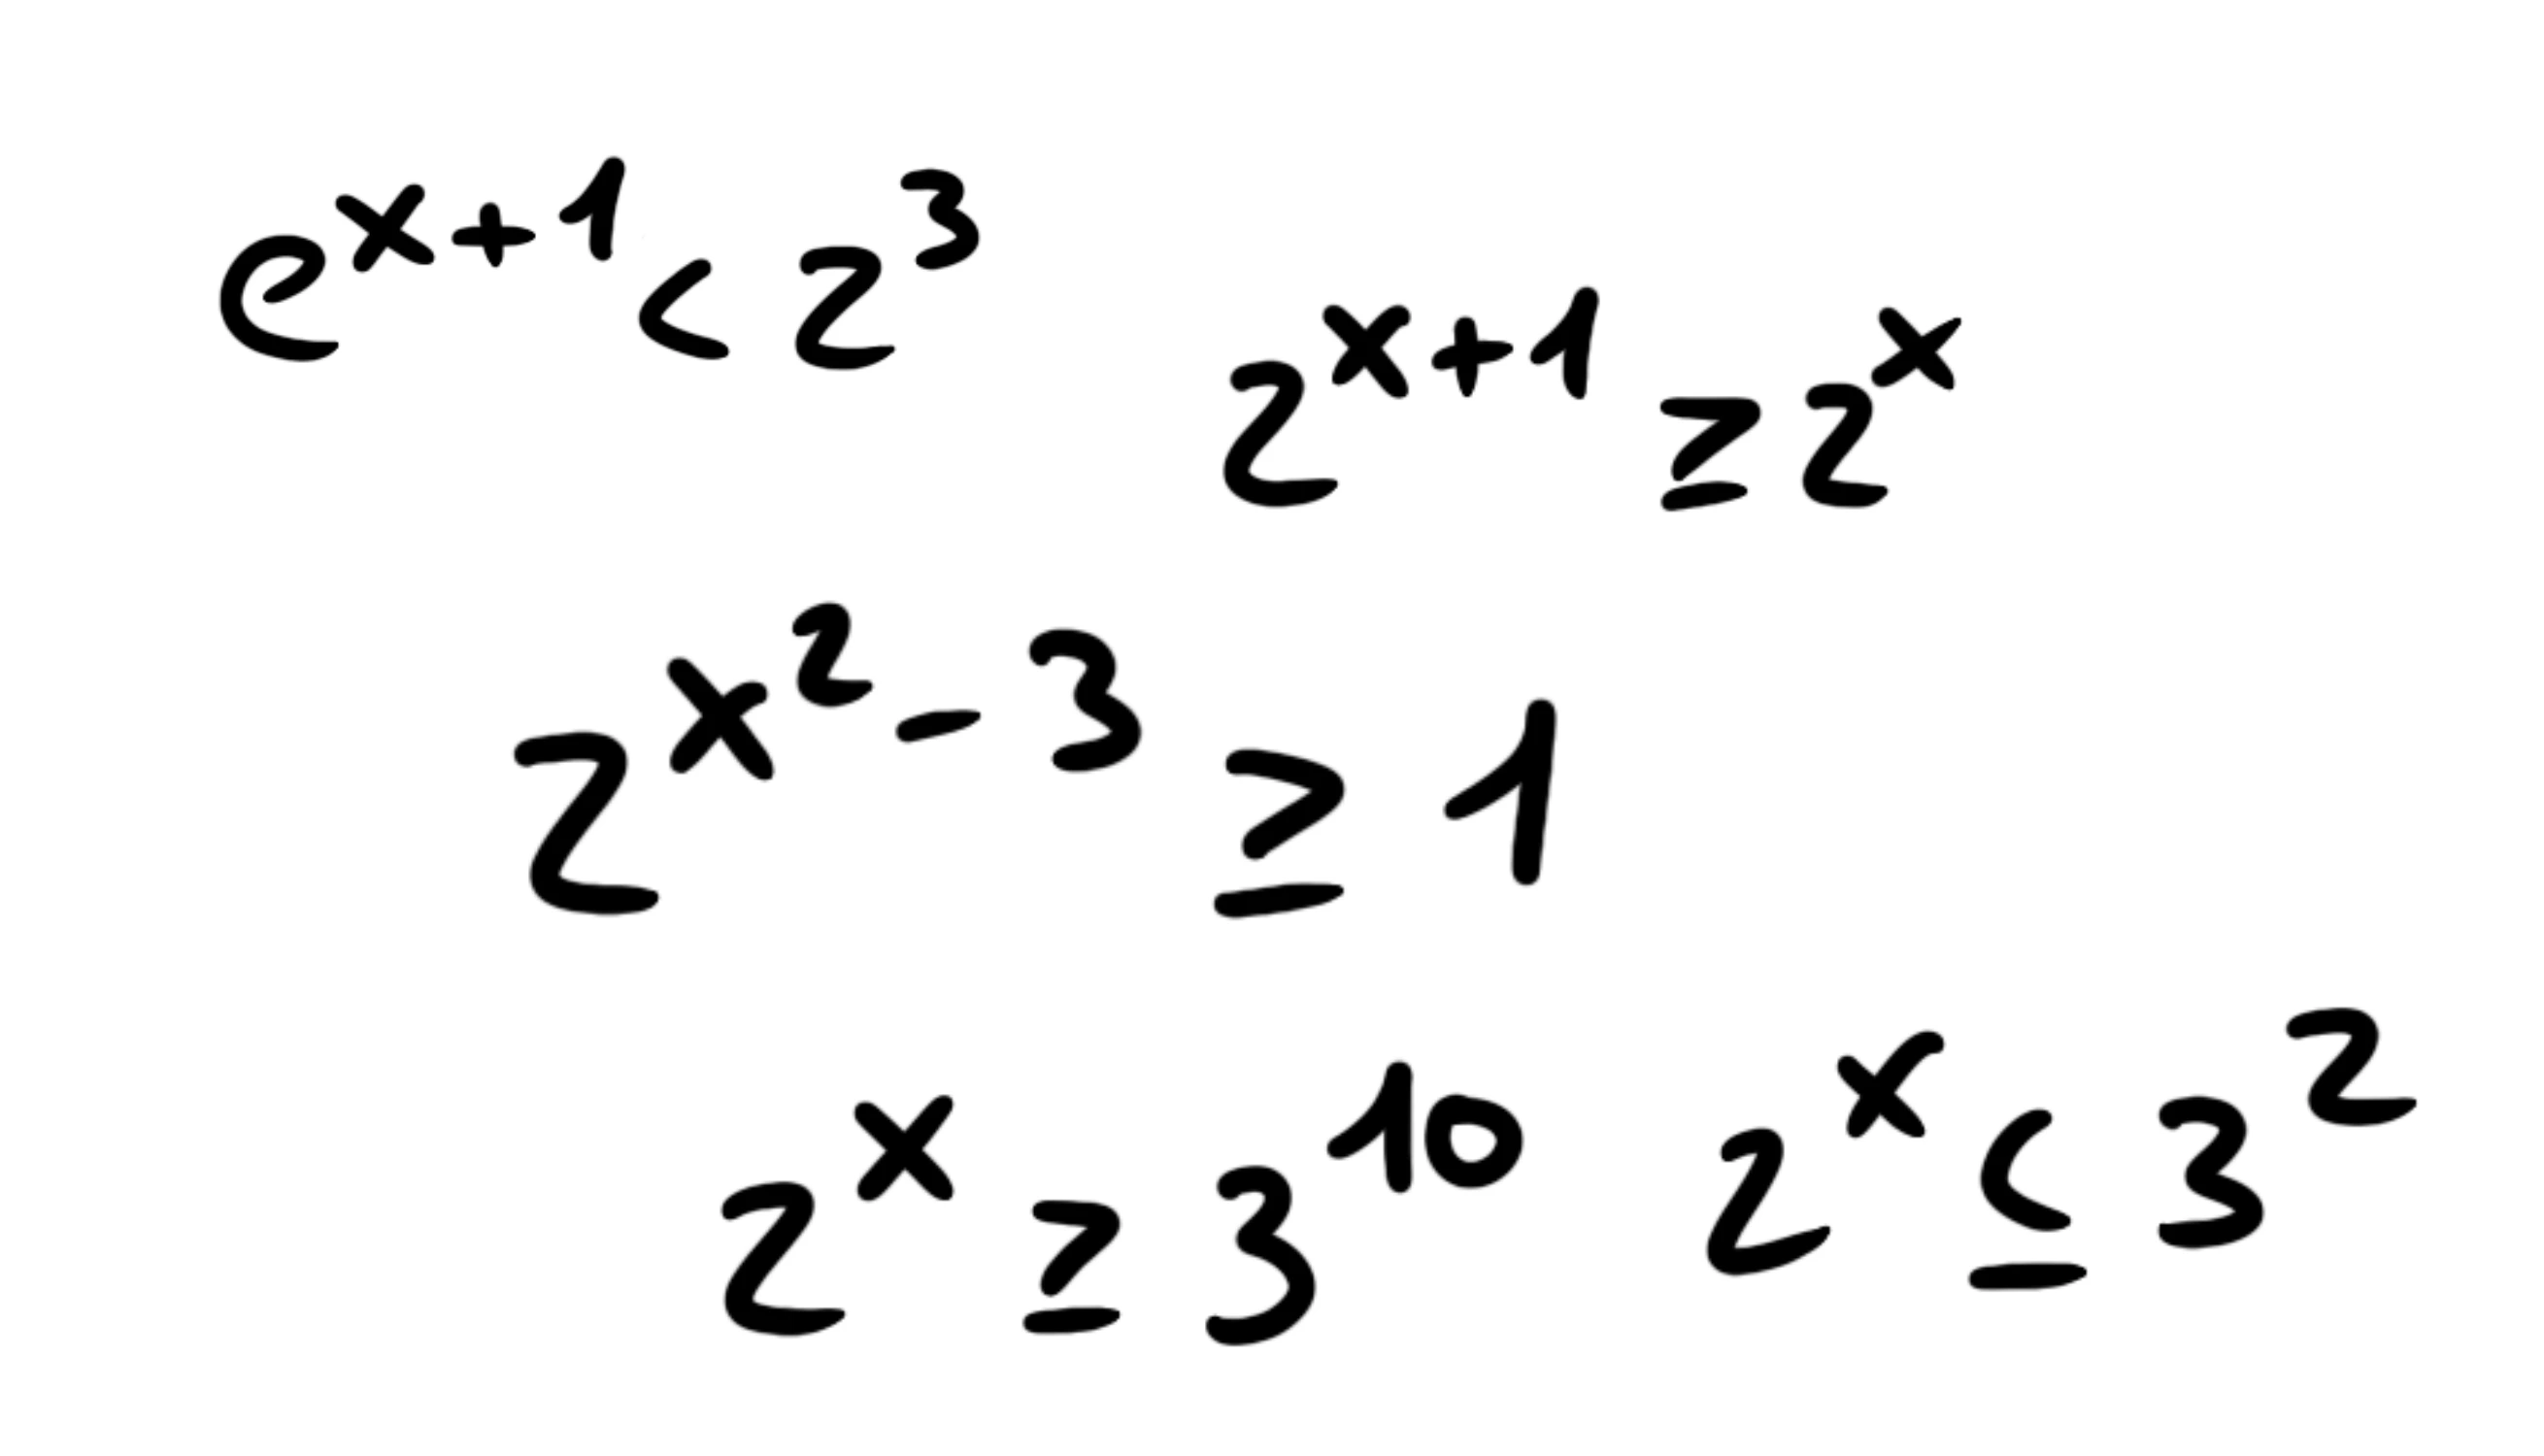 e^{x+1} < 2^3
2^{x+1} ≥ 2^x
2^{x^2-3} ≥ 1
2^x ≥ 3^{10}
2^x ≤ 3^2